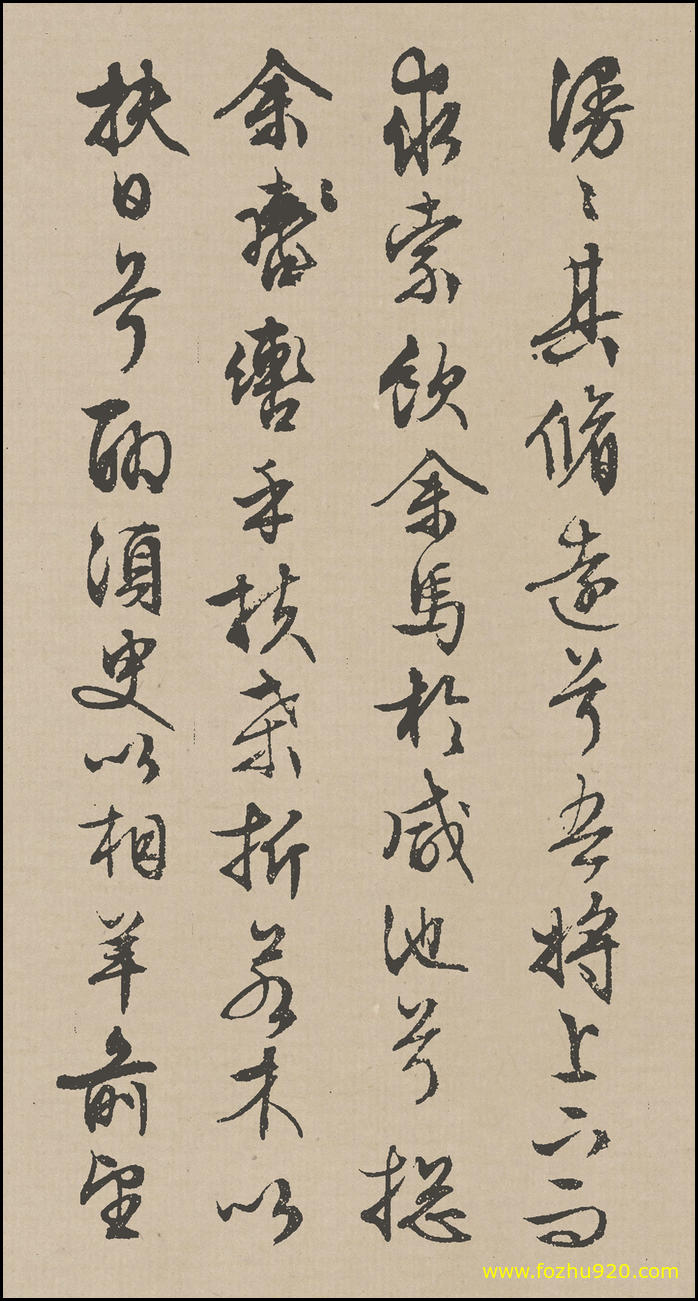 漫〻其脩遠兮吾將上下而
求索飲余馬於咸池兮揔
余轡乎扶桑折若木以
扶日兮聊湏臾以相羊前望
www.fozhu920.com